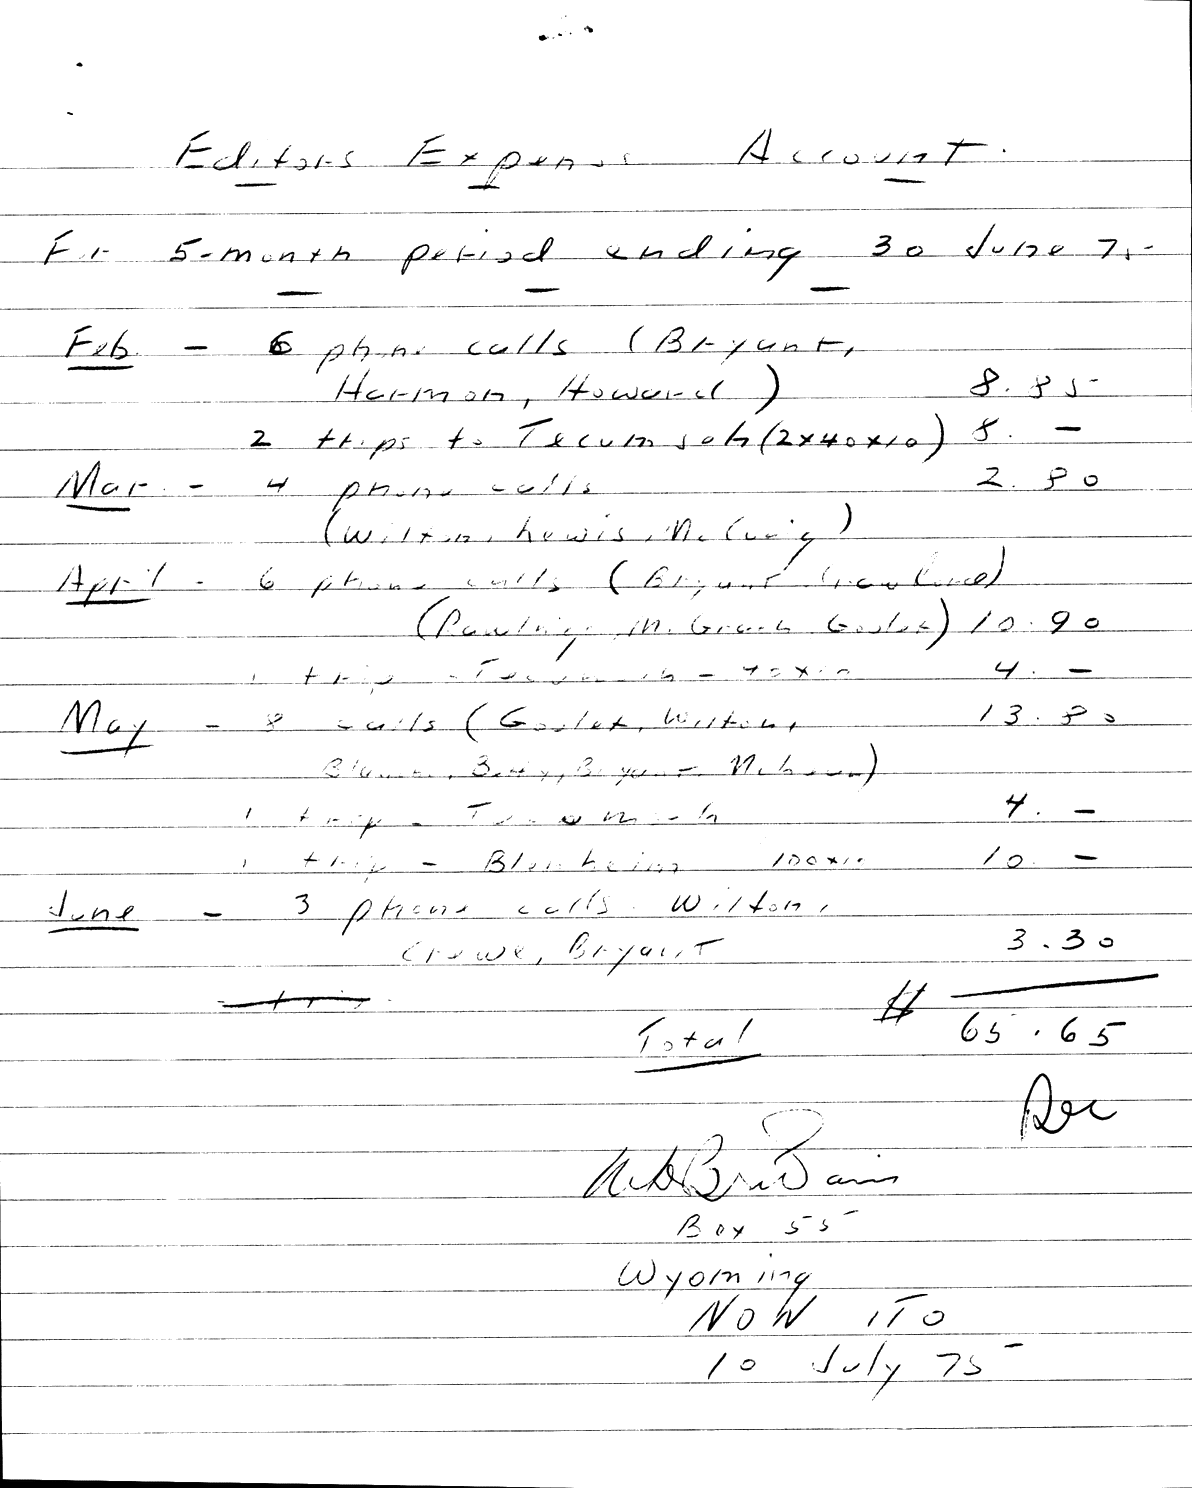 Editors Expense Account.
For 5-month period ending 30 June 75
Feb. - 6 phone calls (Bryant,
Harmon, Howard) 8.85
2 trips to Tecumseh (2x40x10) 8. -
Mar. - 4 phone calls 2.80
(Wilton, Lewis, McCraig)
April - 6 phone calls (Bryant
(Pawling, McGrath Goslet) 10.90
1 trip - Tecumseh - 40x10 4. -
May - 8 calls (Goslet, Wilton, 13.80
Betty, Bryant
1 trip - Tecumseh 4. -
1 trip - Blenheim 100x10 10. -
June - 3 phone calls. Wilton,
Crewe, Bryant 3.30
Total $ 65.65
Box 55
Wyoming
NON 1T0
10 July 75